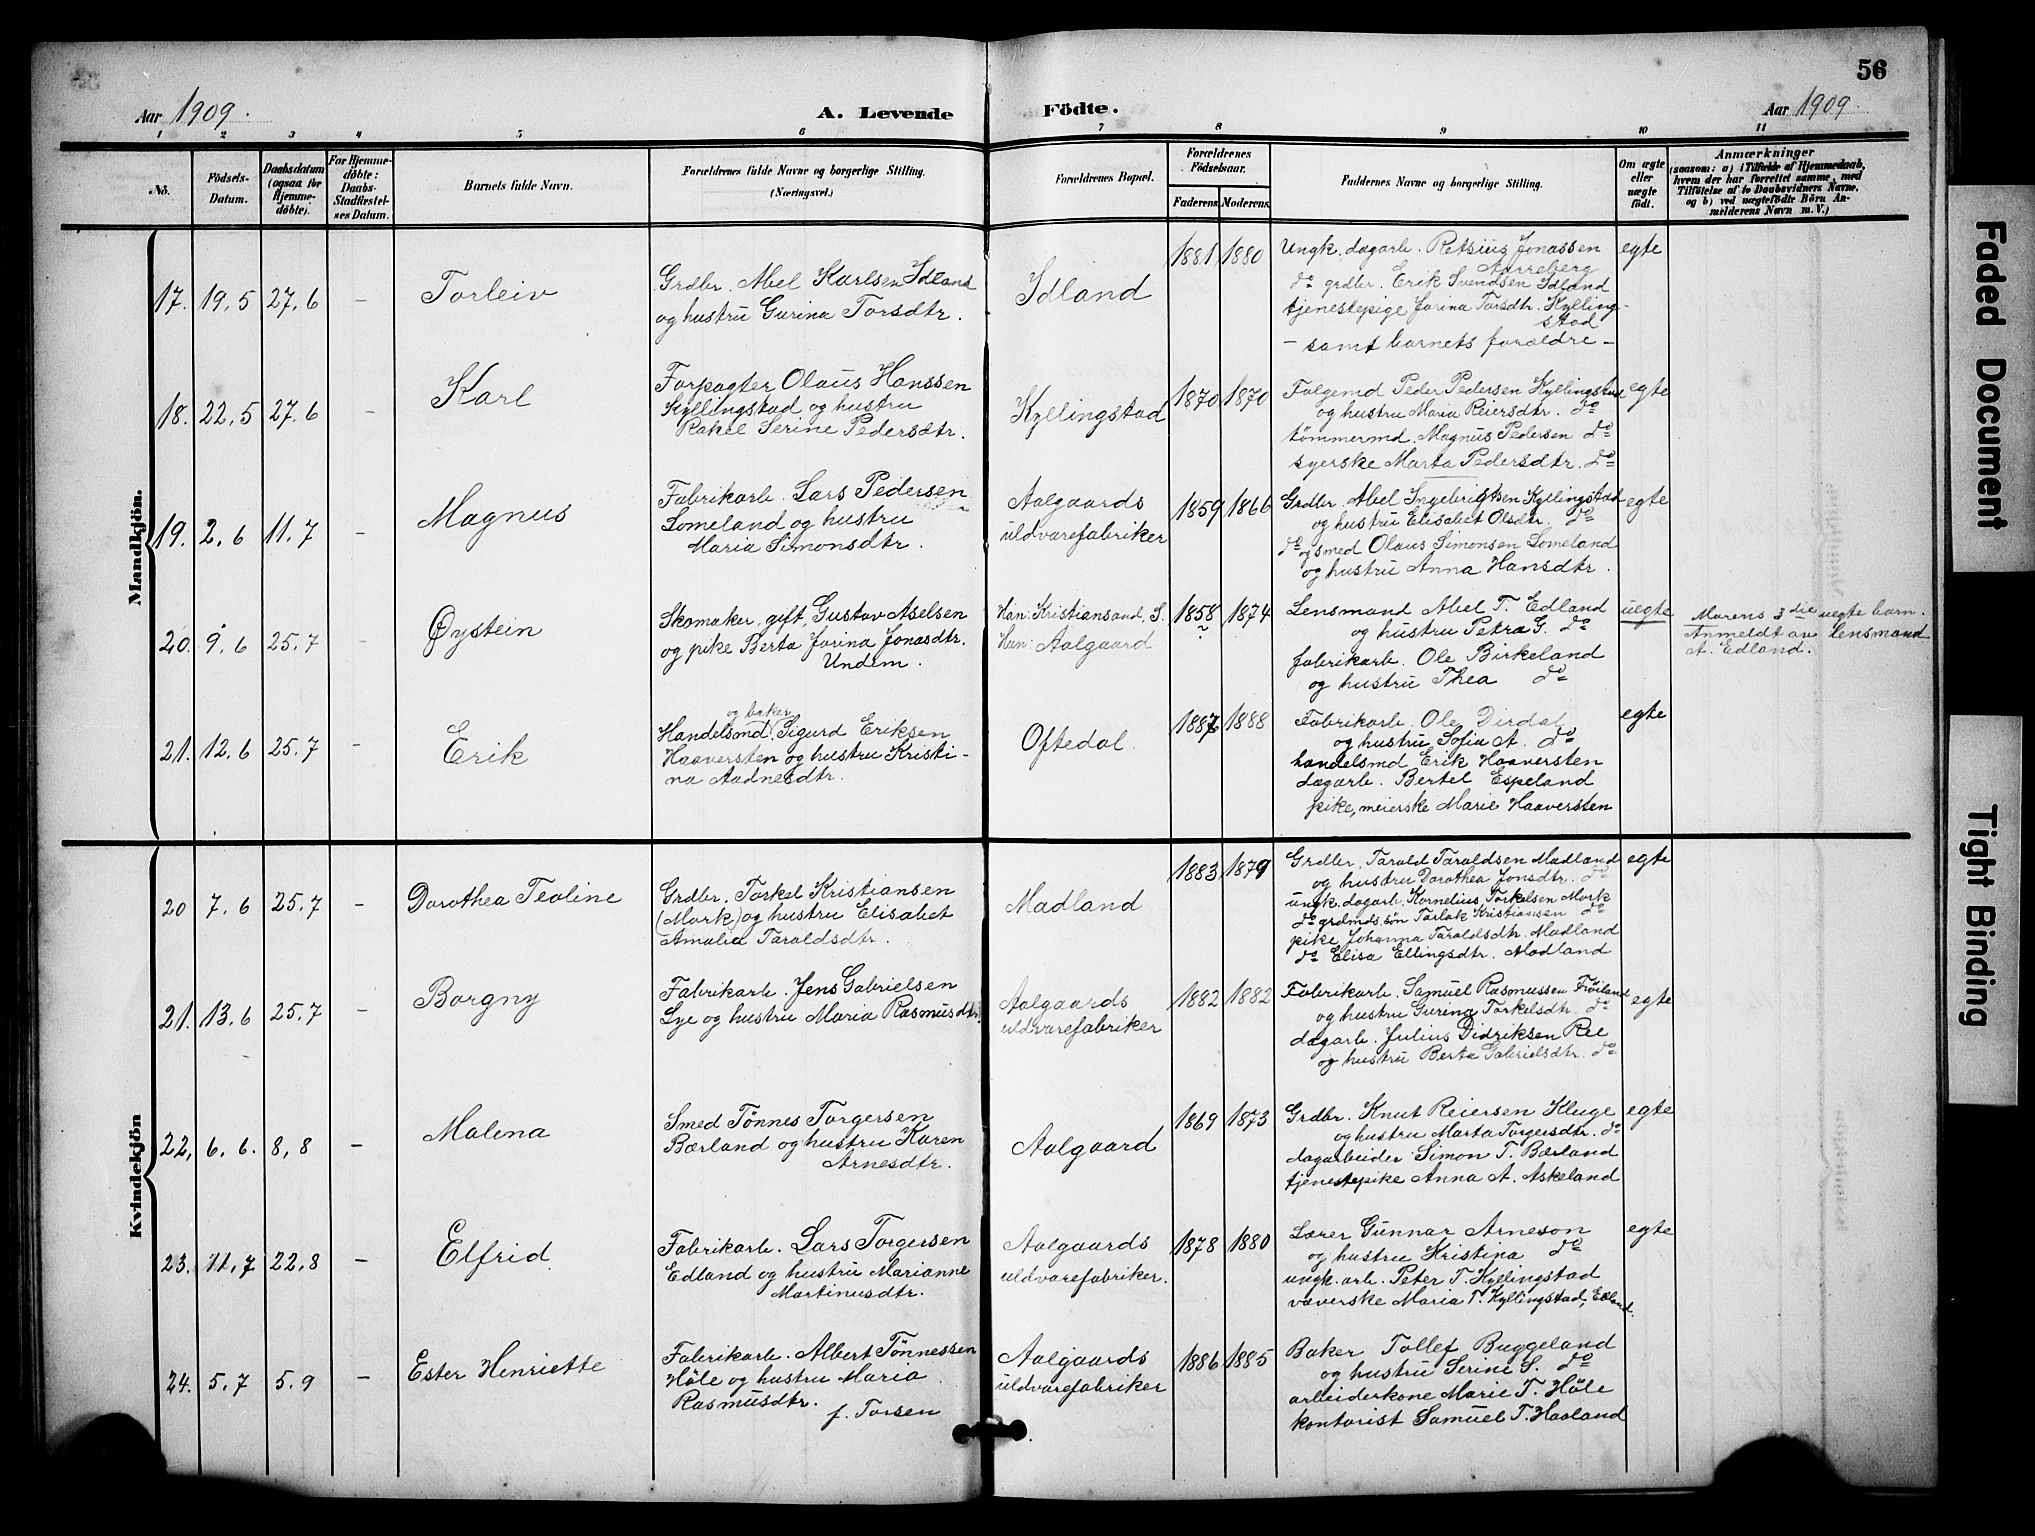 56
Aar 1909.
A. Levende Födte.
Aar 1909.
1 2 3 4 5 6 7 8 9 10 11
No.
Födsels-Datum.
Daabsdatum (ogsaa for Hjemme-döbte).
For Hjemme-döbte: Daabs-Stadfæstel-ses Datum.
Barnets fulde Navn.
Forældrenes fulde Navne og borgerlige Stilling.
(Næringsvei.)
Forældrenes Bopæl.
Forældrenes Födselsaar.
Faderens. Moderens.
Faddernes Navne og borgerlige Stilling.
Om ægte eller uægte födt.
Anmærkninger
(saasom: a) i Tilfælde af Hjemmedaab, hvem der har forrettet samme, med Tilföielse af to Daabsvidners Navne, og b) ved uægtefödte Börn An-melderens Navn m. V.)
Mandkjön.
17. 19.5 27.6 – Torleiv
Grdbr. Abel Karlsen Idland
og hustru Gurina Torsdtr.
Idland
1881 1880
Ungk. dagarb. Retsius Jonassen
Aarreberg
do grdbr. Erik Svendsen Idland
tjenestepige Jorina Torsdtr. Kylling-
stad
– samt barnets forældre –
egte
18. 22.5 27.6 – Karl
Forpagter Olaus Hanssen
Kyllingstad og hustru
Rakel Serine Pedersdtr.
Kyllingstad
1870 1870
Folgemd Peder Pedersen Kyllingstad
og hustru Maria Reiersdtr. do
tømmermd. Magnus Pedersen do
syerske Marta Pedersdtr. do
egte
19. 2.6 11.7 – Magnus
Fabrikarb. Lars Pedersen
Lomeland og hustru
Maria Simonsdtr.
Aalgaards
uldvarefabriker
1859 1866
Grdbr. Abel Ingebrigtsen Kyllingstad
og hustru Elisabet Olsdtr. do
do og smed Olaus Simonsen Lomeland
og hustru Anna Hansdtr.
egte
20. 9.6 25.7 – Øystein
Skomaker, gift, Gustav Aselsen
og pike Berta Jorina Jonasdtr.
Undem.
Han: Kristiansand S.
Hun: Aalgaard
1858 1874
Lensmand Abel T. Edland
og hustru Petra G. do
fabrikarb. Ole Birkeland
og hustru Thea do
uegte
Morens 3die uegte barn.
Anmeldt av lensmand
A. Edland.
21. 12.6 25.7 – Erik
og baker
Handelsmd. Sigurd Eriksen
Haaversten og hustru Kristi-
na Aadnesdtr.
Oftedal
1887 1888
Fabrikarb. Ole Dirdal
og hustru Sofia A. do
handelsmd Erik Haaversten
dagarb. Bertel Espeland
pike, meierske Marie Haaversten
egte
Kvindekjön
20 7.6 25.7 – Dorothea Teoline
Grdbr. Torkel Kristiansen
(Mork) og hustru Elisabet
Amalia Taraldsdtr.
Madland
1883 1879
Grdbr. Tarald Taraldsen Madland
og hustru Dorothea Jonsdtr. do
ungk. dagarb. Kornelius Torkelsen Mork
do grdmdssøn Tarlak Kristiansen do
pike Johanna Taraldsdtr. Madland
do Elisa Ellingsdtr. Madland
egte
21. 13.6 25.7 – Borgny
Fabrikarb. Jens Gabrielsen
Lye og hustru Maria Rasmusdtr.
Aalgaards
uldvarefabriker
1882 1882
Fabrikarb. Samuel Rasmussen Frøiland
og hustru Gurina Torkelsdtr. do
dagarb. Julius Didriksen Ree
og hustru Berta Gabrielsdtr. do
egte
22, 6.6. 8,8 – Malena
Smed Tönnes Torgersen
Bærland og hustru Karen
Arnesdtr.
Aalgaard
1869 1873
Grdbr. Knut Reiersen Kluge
og hustru Marta Torgersdtr. do
dagarbeider Simon T. Bærland
tjenestepike Anna A. Askeland
egte
23. 11.7 22.8 – Elfrid
Fabrikarb. Lars Torgersen
Edland og hustru Marianne
Martinusdtr.
Aalgaards
uldvarefabriker.
1878 1880
Lærer Gunnar Arneson
og hustru Kristina do
ungk. arb. Peter T. Kyllingstad
væverske Maria T. Kyllingstad, Edland.
egte
24. 5.7 5.9 – Ester Henriette
Fabrikarb. Albert Tönnessen
Höle og hustru Maria
Rasmusdtr.
f. Torsen
Aalgaards
uldvarefabriker
1886 1885
Baker Tollef Buggeland
og hustru Serine S. do
arbeiderkone Marie T. Höle
kontorist Samuel T. Haaland
Faded Document
Tight Binding